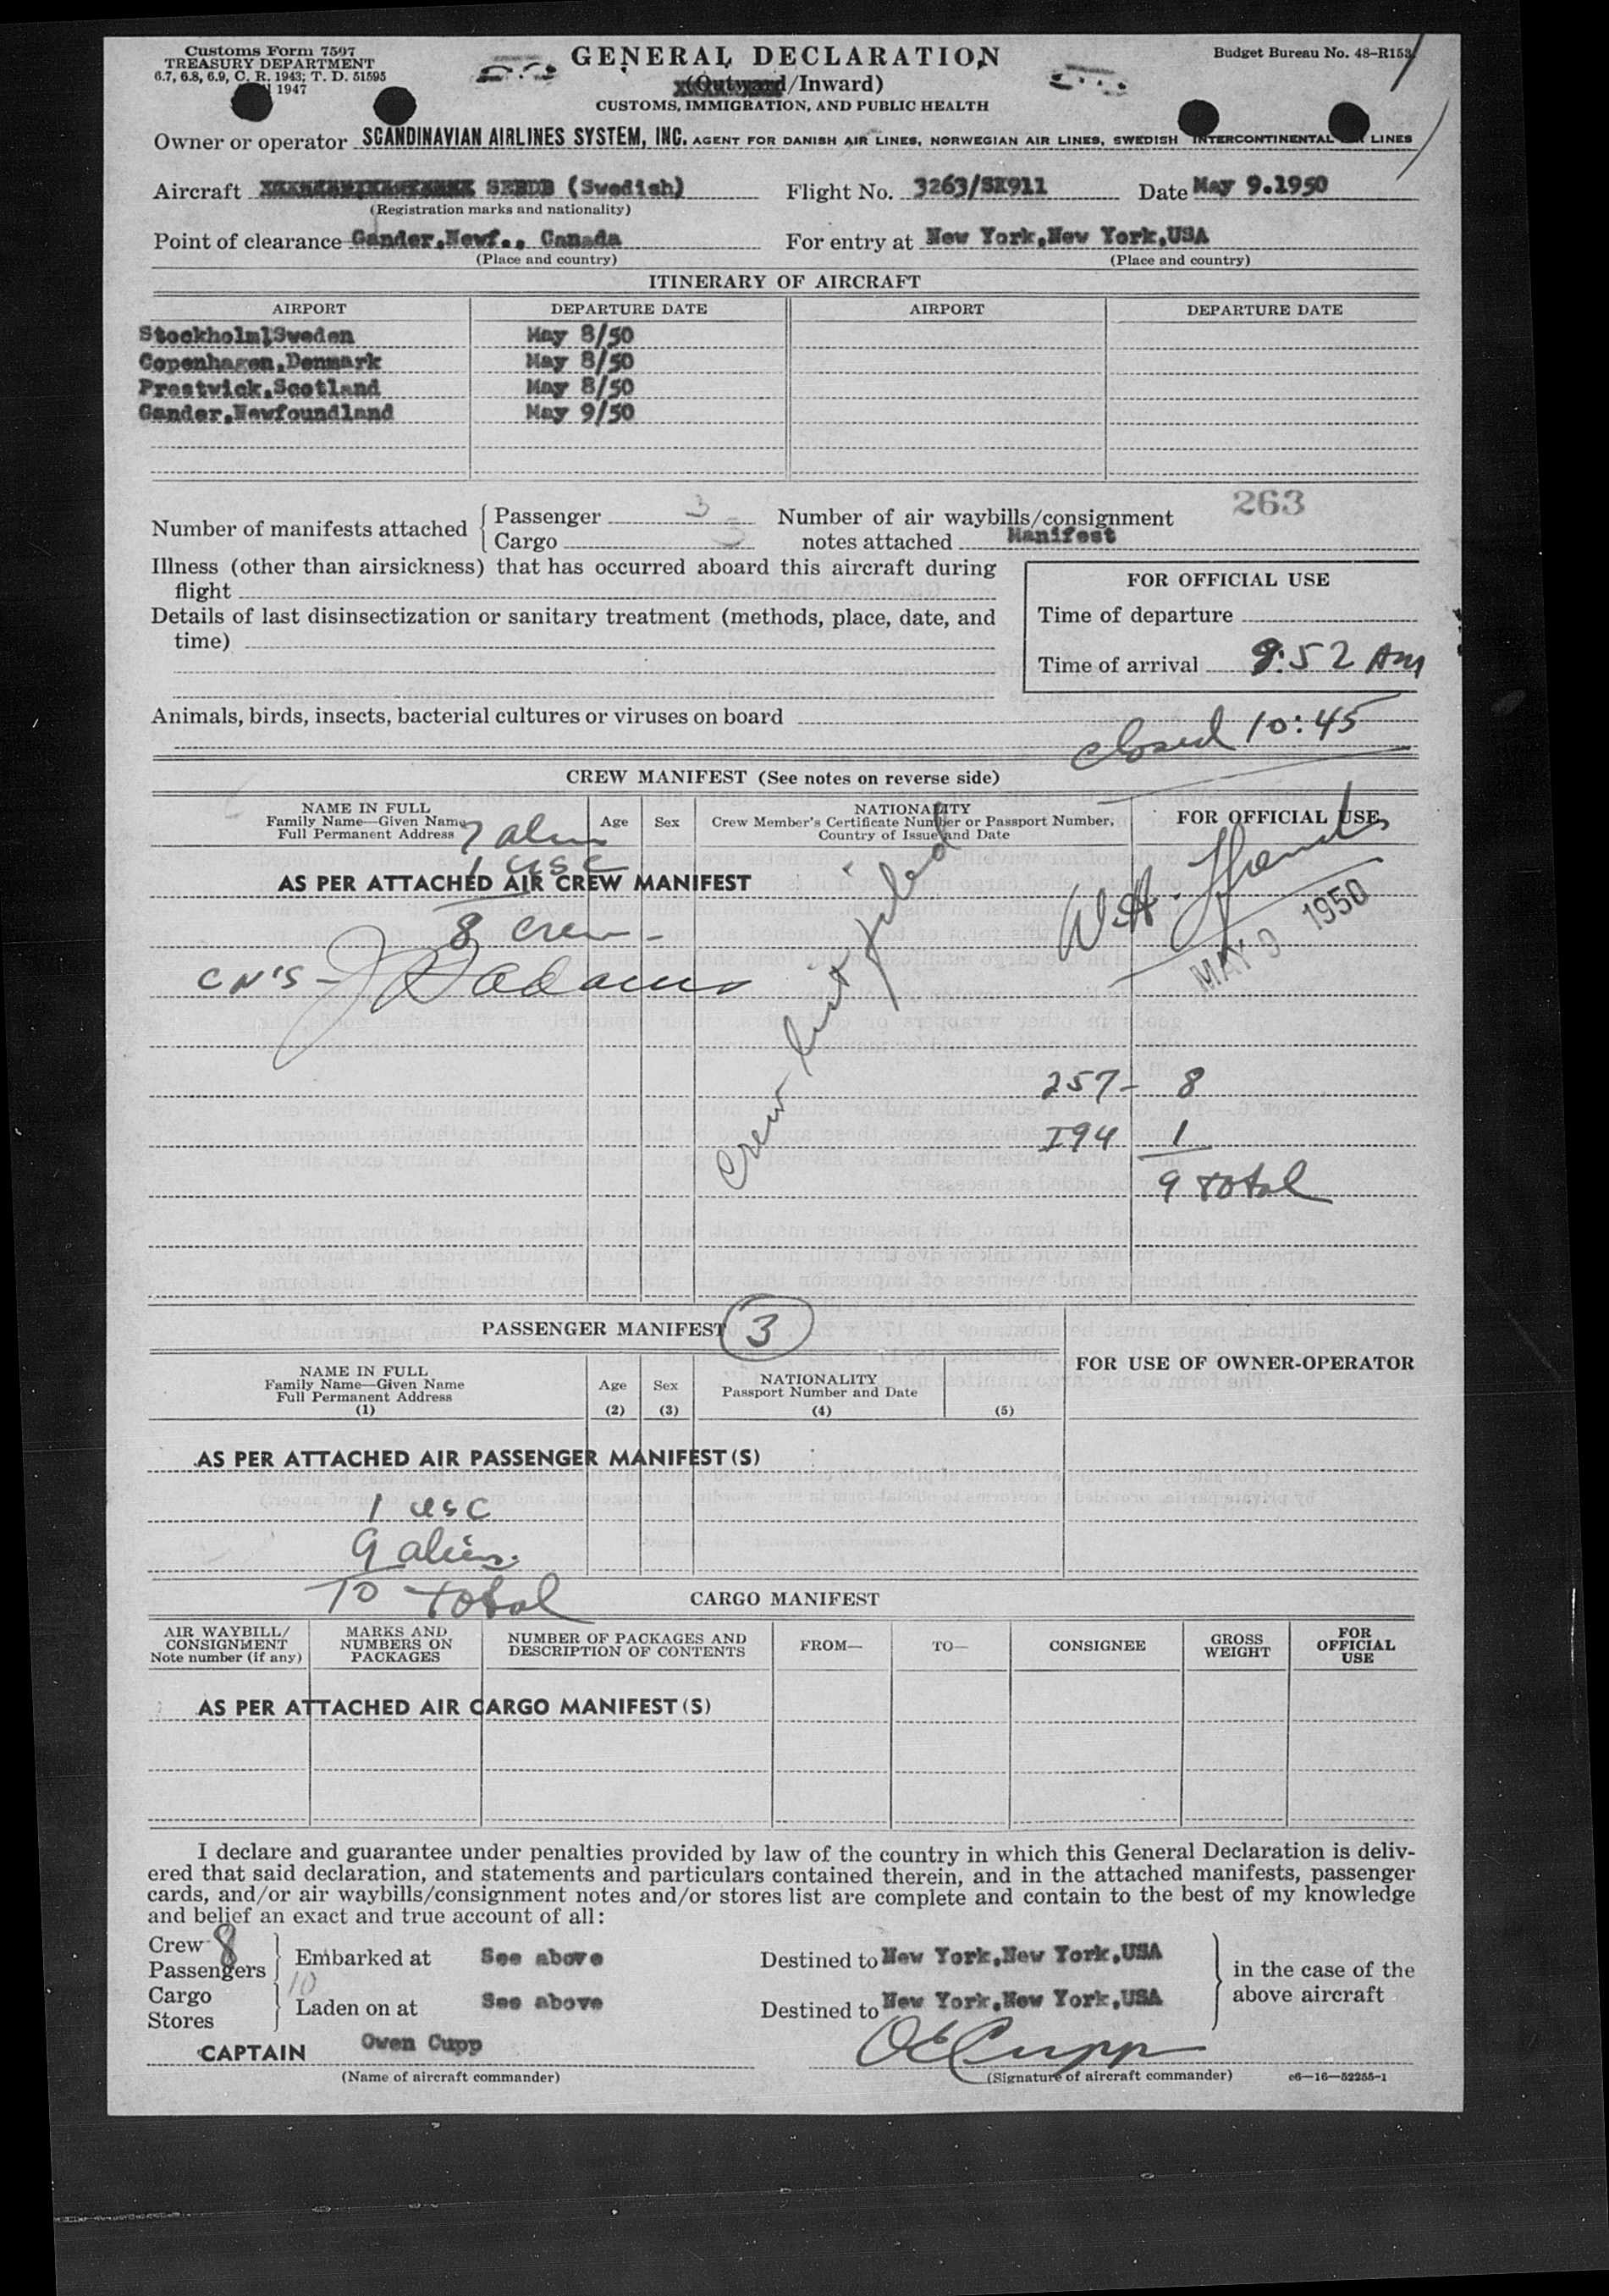 Customs Form 7507
TREASURY DEPARTMENT
6.7, 6.8, 6.9, C. R. 1943; T. D. 51595
1947
GENERAL DECLARATION
(Outward/Inward)
CUSTOMS, IMMIGRATION, AND PUBLIC HEALTH
Budget Bureau No. 48-R153
Owner or operator SCANDINAVIAN AIRLINES SYSTEM, INC. AGENT FOR DANISH AIR LINES, NORWEGIAN AIR LINES, SWEDISH INTERCONTINENTAL LINES
Aircraft SEBDB (Swedish) Flight No. 3263/SK911 Date May 9.1950
(Registration marks and nationality)
Point of clearance Gander,Newf., Canada For entry at New York,New York,USA
(Place and country) (Place and country)
ITINERARY OF AIRCRAFT
AIRPORT DEPARTURE DATE AIRPORT DEPARTURE DATE
Stockholm,Sweden May 8/50
Copenhagen,Denmark May 8/50
Prestwick,Scotland May 8/50
Gander,Newfoundland May 9/50
263
Number of manifests attached Passenger 3 Number of air waybills/consignment
Cargo 3 notes attached Manifest
Illness (other than airsickness) that has occurred aboard this aircraft during
flight
Details of last disinsectization or sanitary treatment (methods, place, date, and
time)
FOR OFFICIAL USE
Time of departure
Time of arrival 9:52 AM
Animals, birds, insects, bacterial cultures or viruses on board
closed 10:45
CREW MANIFEST (See notes on reverse side)
NAME IN FULL
Family Name—Given Name
Full Permanent Address
Age Sex
NATIONALITY
Crew Member's Certificate Number or Passport Number,
Country of Issue and Date
FOR OFFICIAL USE
7 alien
1 USC
AS PER ATTACHED AIR CREW MANIFEST
8 crew
MAY 9 1950
CN'S - J Adams
Crew list filed
257- 8
I94 1
9 total
PASSENGER MANIFEST 3
NAME IN FULL
Family Name—Given Name
Full Permanent Address
(1)
Age
(2)
Sex
(3)
NATIONALITY
Passport Number and Date
(4)
(5)
FOR USE OF OWNER-OPERATOR
AS PER ATTACHED AIR PASSENGER MANIFEST(S)
1 USC
9 aliens
10 total
CARGO MANIFEST
AIR WAYBILL/
CONSIGNMENT
Note number (if any)
MARKS AND
NUMBERS ON
PACKAGES
NUMBER OF PACKAGES AND
DESCRIPTION OF CONTENTS
FROM—
TO—
CONSIGNEE
GROSS
WEIGHT
FOR
OFFICIAL
USE
AS PER ATTACHED AIR CARGO MANIFEST(S)
I declare and guarantee under penalties provided by law of the country in which this General Declaration is deliv-
ered that said declaration, and statements and particulars contained therein, and in the attached manifests, passenger
cards, and/or air waybills/consignment notes and/or stores list are complete and contain to the best of my knowledge
and belief an exact and true account of all:
Crew 8
Passengers 10
Embarked at See above Destined to New York,New York,USA
Cargo
Stores
Laden on at See above Destined to New York,New York,USA
in the case of the
above aircraft
CAPTAIN Owen Cupp OECupp
(Name of aircraft commander) (Signature of aircraft commander) c6—16—52255-1